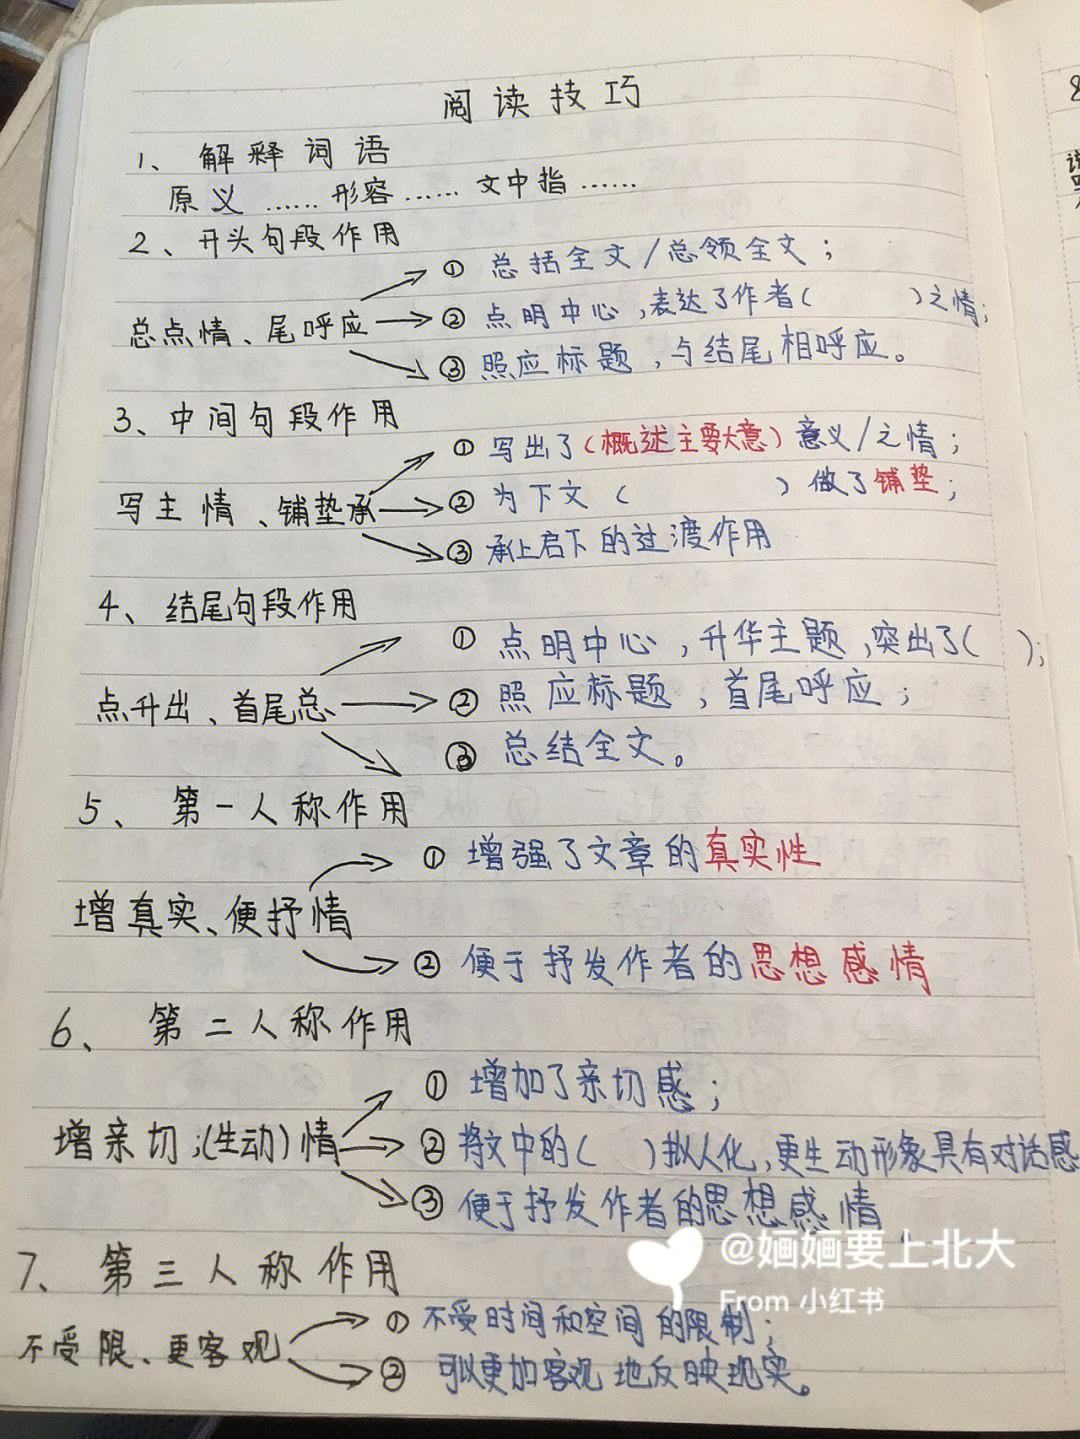 阅读技巧
1、解释词语
原义……形容……文中指……
2、开头句段作用
①总括全文/总领全文；
总点情、尾呼应 ②点明中心，表达了作者（ ）之情；
③照应标题，与结尾相呼应。
3、中间句段作用
①写出了（概述主要大意）意义/之情；
写主情、铺垫承 ②为下文（ ）做了铺垫；
③承上启下的过渡作用
4、结尾句段作用
①点明中心，升华主题，突出了（ ）；
点升出、首尾总 ②照应标题，首尾呼应；
③总结全文。
5、第一人称作用
①增强了文章的真实性
增真实、便抒情
②便于抒发作者的思想感情
6、第二人称作用
①增加了亲切感；
增亲切；（生动）情 ②将文中的（ ）拟人化，更生动形象具有对话感
③便于抒发作者的思想感情
7、第三人称作用
①不受时间和空间的限制；
不受限、更客观
②可以更加客观地反映现实。
@婳婳要上北大
From 小红书